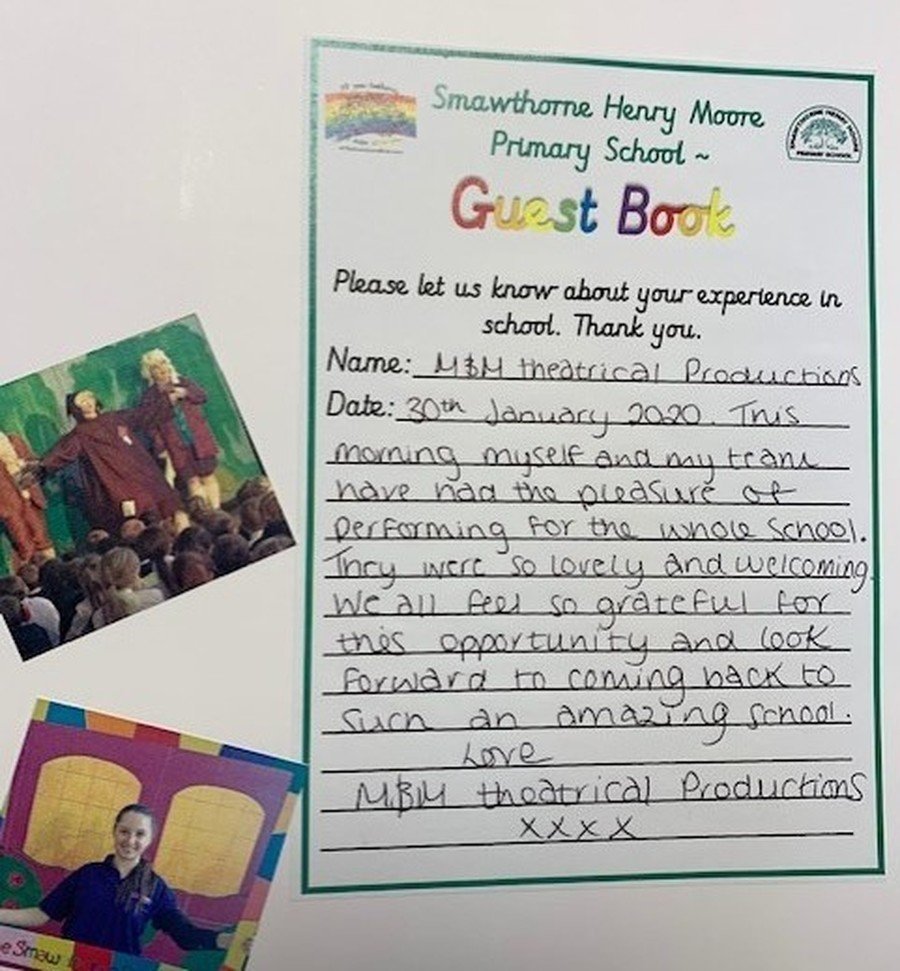 Smawthorne Henry Moore
Primary School ~
Guest Book
Please let us know about your experience in
school. Thank you.
Name: M&M theatrical Productions
Date: 30th January 2020. This
morning myself and my team
have had the pleasure of
performing for the whole school.
They were so lovely and welcoming.
We all feel so grateful for
this opportunity and look
forward to coming back to
such an amazing school.
Love
M&M theatrical Productions
xxxx
PRIMARY SCHOOL
e Smaw